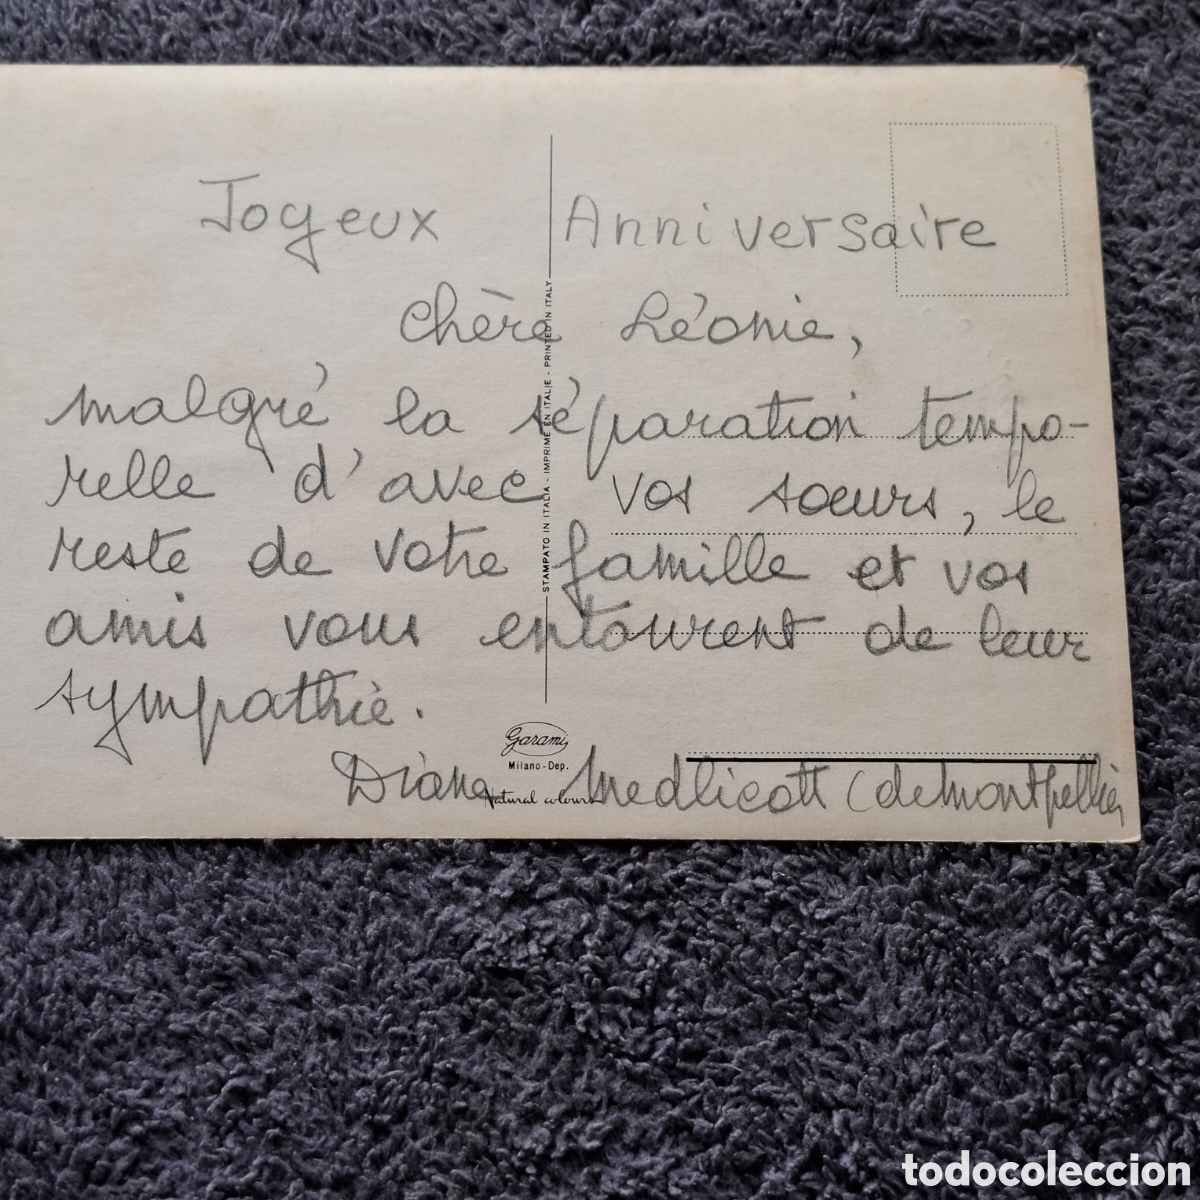 Joyeux Anniversaire
chère Léonie,
malgré la séparation tempo-
relle d'avec vos sœurs, le
reste de votre famille et vos
amis vous entourent de leur
sympathie.
Diane Medlicott (de Montpellier
STAMPATO IN ITALIA - IMPRIMÉ EN ITALIE - PRINTED IN ITALY
Garami
Milano-Dep.
Natural colours
todocoleccion